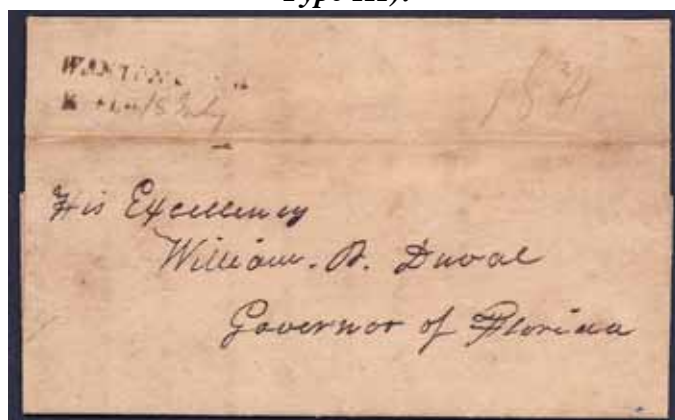 Type III).
15 July
His Excellency
William. P. Duval
Governor of Florida